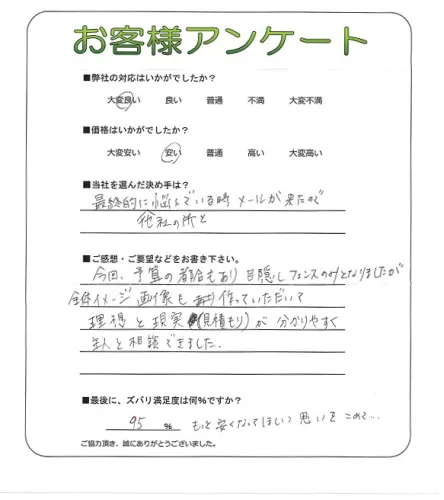 お客様アンケート
■弊社の対応はいかがでしたか？
大変良い 良い 普通 不満 大変不満
■価格はいかがでしたか？
大変安い 安い 普通 高い 大変高い
■当社を選んだ決め手は？
最終的に悩んでいる時メールが来たので
他社の所と
■ご感想・ご要望などをお書き下さい。
今回、予算の都合もあり目隠しフェンスのみとなりましたが
全体イメージ画像も作っていただいて
理想と現実(見積もり)が分かりやすく
主人と相談できました。
■最後に、ズバリ満足度は何％ですか？
95 % もっと安くなってほしい思いをこめて...
ご協力頂き、誠にありがとうございました。